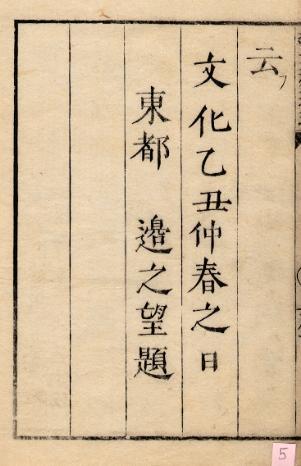 云
文化乙丑仲春之日
東都 邉之望題
5